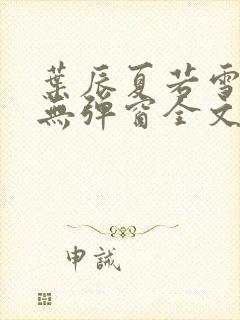 葉辰夏若雪
無彈窗全文
申誠